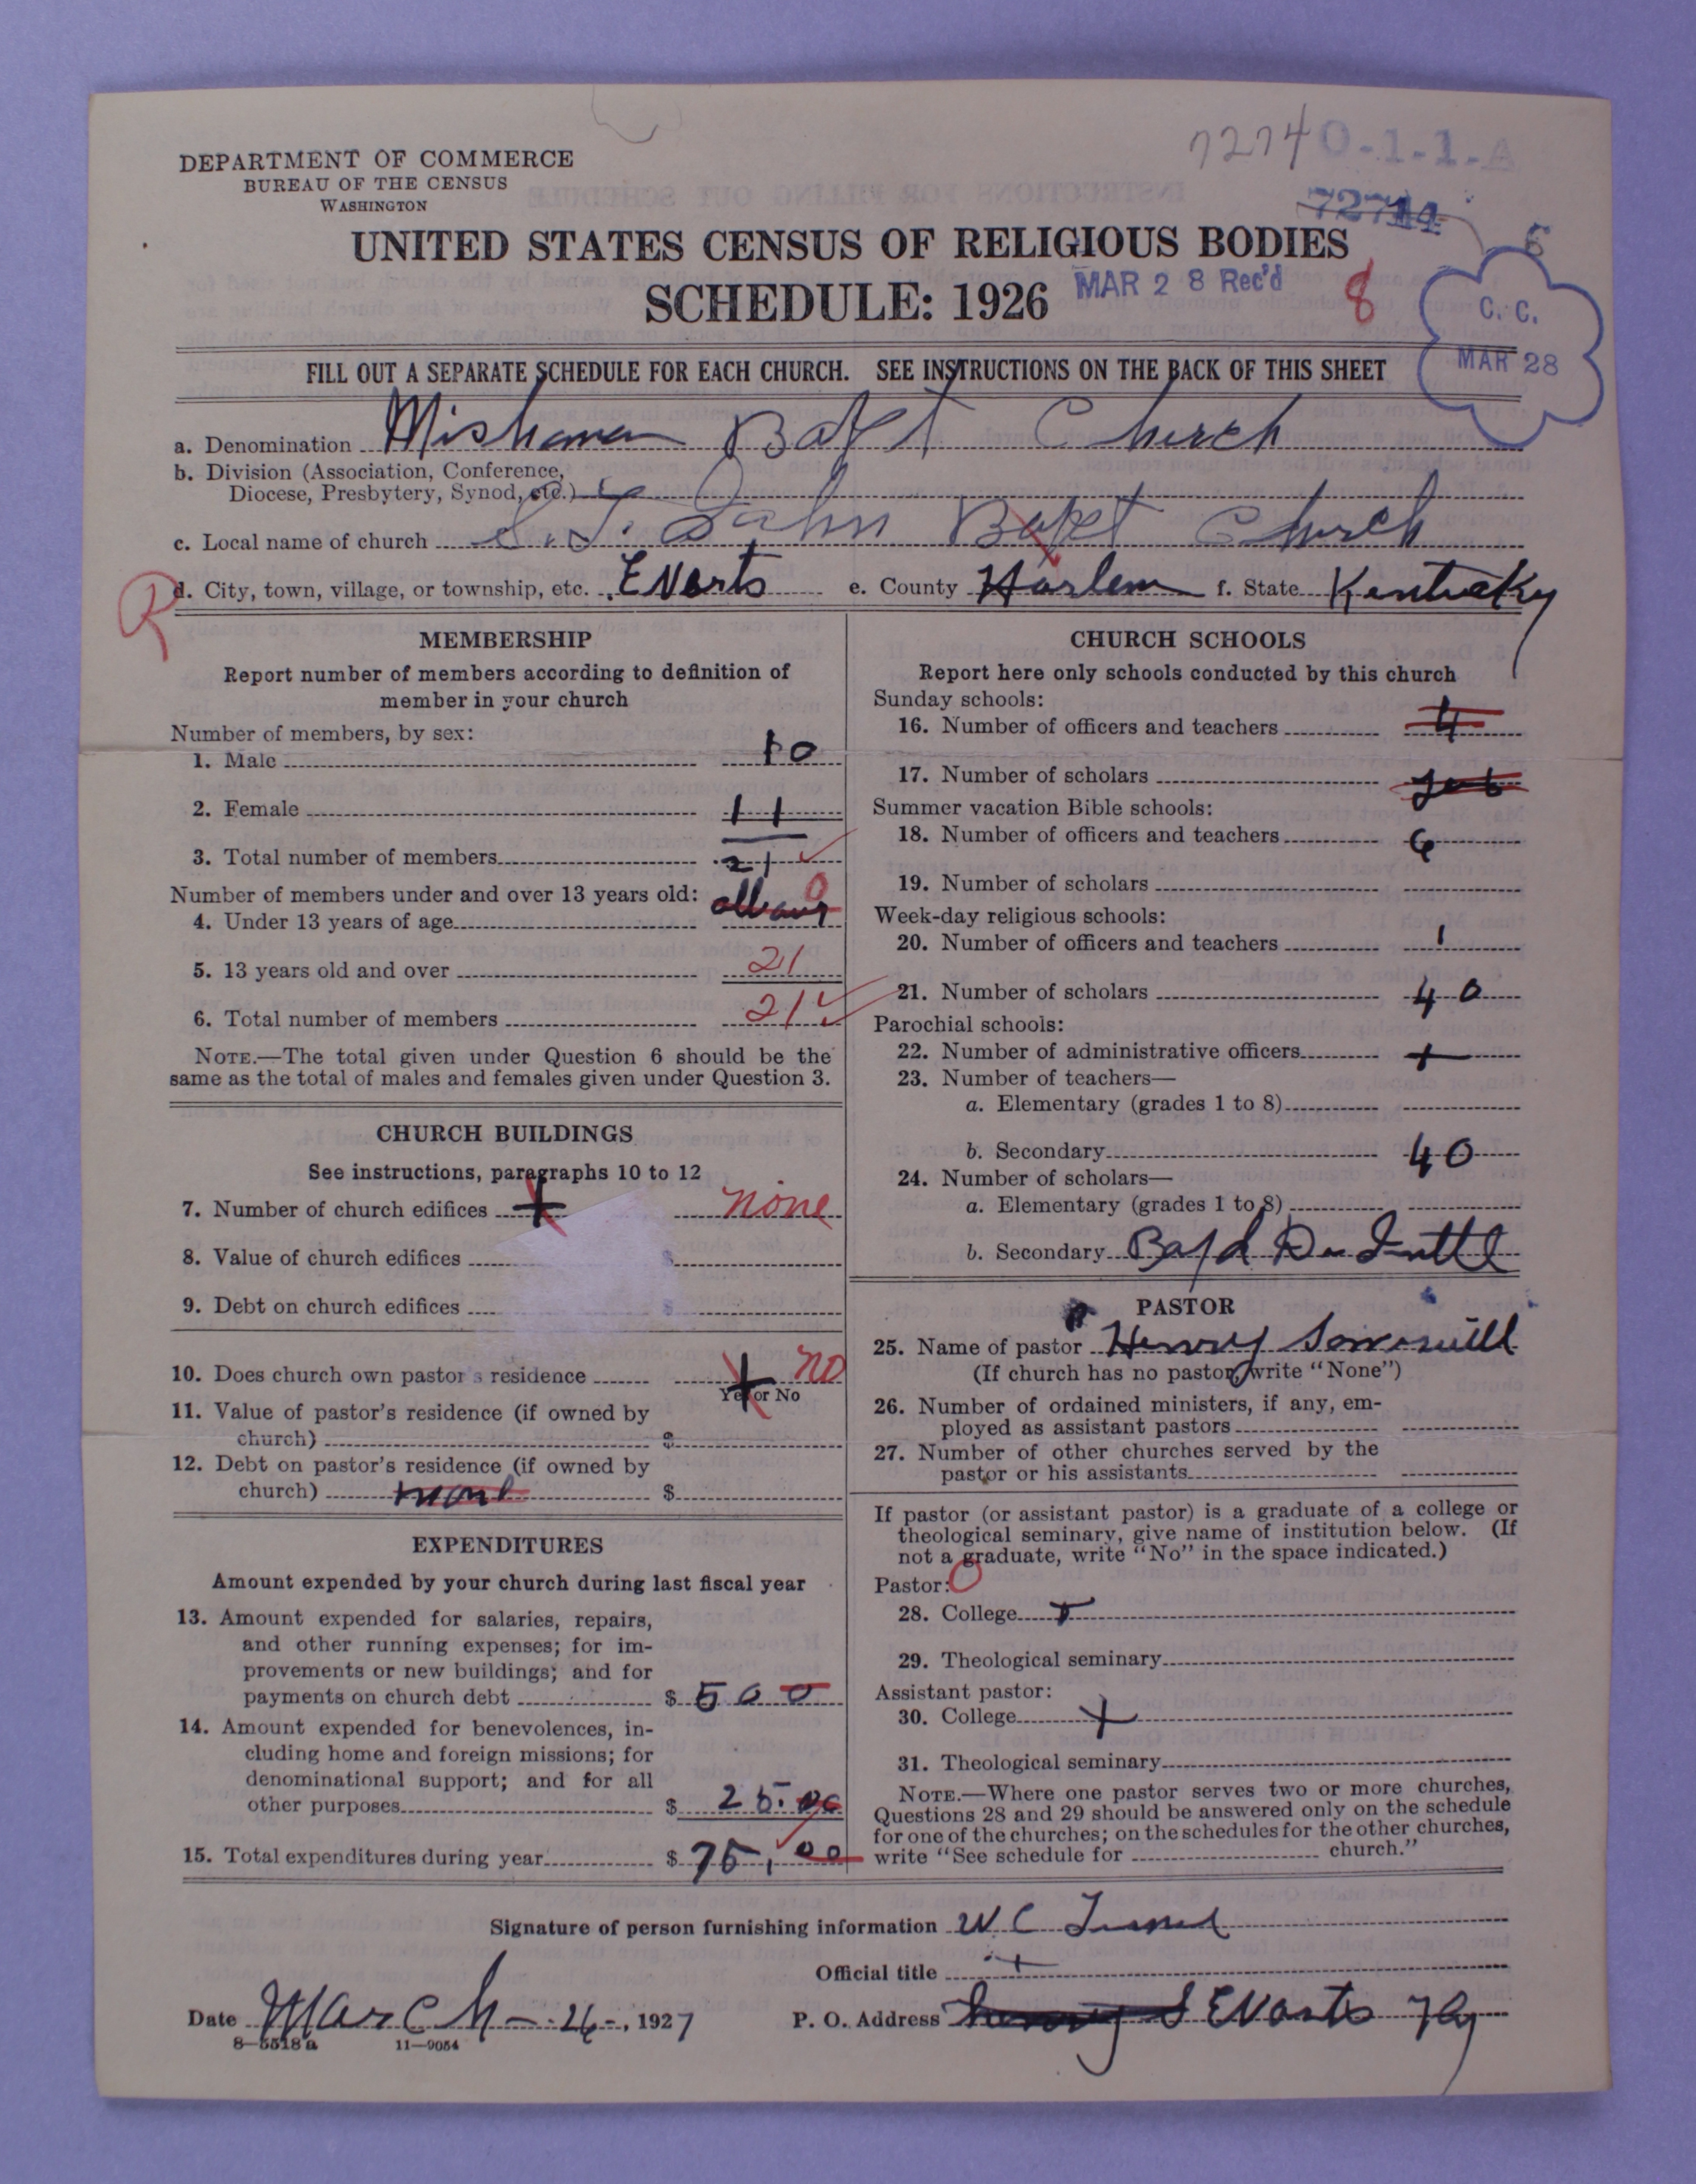 7274 0-1-1-A
DEPARTMENT OF COMMERCE
BUREAU OF THE CENSUS
WASHINGTON
UNITED STATES CENSUS OF RELIGIOUS BODIES
SCHEDULE: 1926
MAR 28 Rec'd
8
C. C.
MAR 28
FILL OUT A SEPARATE SCHEDULE FOR EACH CHURCH. SEE INSTRUCTIONS ON THE BACK OF THIS SHEET
a. Denomination Bapt Church
b. Division (Association, Conference,
Diocese, Presbytery, Synod, etc.)
c. Local name of church S.T. John Bapt Church
d. City, town, village, or township, etc. EVarts e. County Harlem f. State Kentucky
R
MEMBERSHIP
Report number of members according to definition of
member in your church
Number of members, by sex:
1. Male 10
2. Female 11
3. Total number of members 21
Number of members under and over 13 years old:
4. Under 13 years of age 0
5. 13 years old and over 21
6. Total number of members 21
NOTE.—The total given under Question 6 should be the
same as the total of males and females given under Question 3.
CHURCH BUILDINGS
See instructions, paragraphs 10 to 12
7. Number of church edifices + none
8. Value of church edifices $
9. Debt on church edifices $
10. Does church own pastor's residence + no
Yes or No
11. Value of pastor's residence (if owned by
church) $
12. Debt on pastor's residence (if owned by
church) $
EXPENDITURES
Amount expended by your church during last fiscal year
13. Amount expended for salaries, repairs,
and other running expenses; for im-
provements or new buildings; and for
payments on church debt $ 500
14. Amount expended for benevolences, in-
cluding home and foreign missions; for
denominational support; and for all
other purposes $ 25.00
15. Total expenditures during year $ 75.00
CHURCH SCHOOLS
Report here only schools conducted by this church
Sunday schools:
16. Number of officers and teachers 4
17. Number of scholars
Summer vacation Bible schools:
18. Number of officers and teachers 6
19. Number of scholars
Week-day religious schools:
20. Number of officers and teachers 1
21. Number of scholars 40
Parochial schools:
22. Number of administrative officers +
23. Number of teachers—
a. Elementary (grades 1 to 8)
b. Secondary 40
24. Number of scholars—
a. Elementary (grades 1 to 8)
b. Secondary
PASTOR
25. Name of pastor Henry
(If church has no pastor, write "None")
26. Number of ordained ministers, if any, em-
ployed as assistant pastors
27. Number of other churches served by the
pastor or his assistants
If pastor (or assistant pastor) is a graduate of a college or
theological seminary, give name of institution below. (If
not a graduate, write "No" in the space indicated.)
Pastor: 0
28. College
29. Theological seminary
Assistant pastor:
30. College +
31. Theological seminary
NOTE.—Where one pastor serves two or more churches,
Questions 28 and 29 should be answered only on the schedule
for one of the churches; on the schedules for the other churches,
write "See schedule for church."
Signature of person furnishing information W C
Official title +
Date March - 26 -, 1927 P. O. Address EVarts Ky
8—5518 a 11—9054